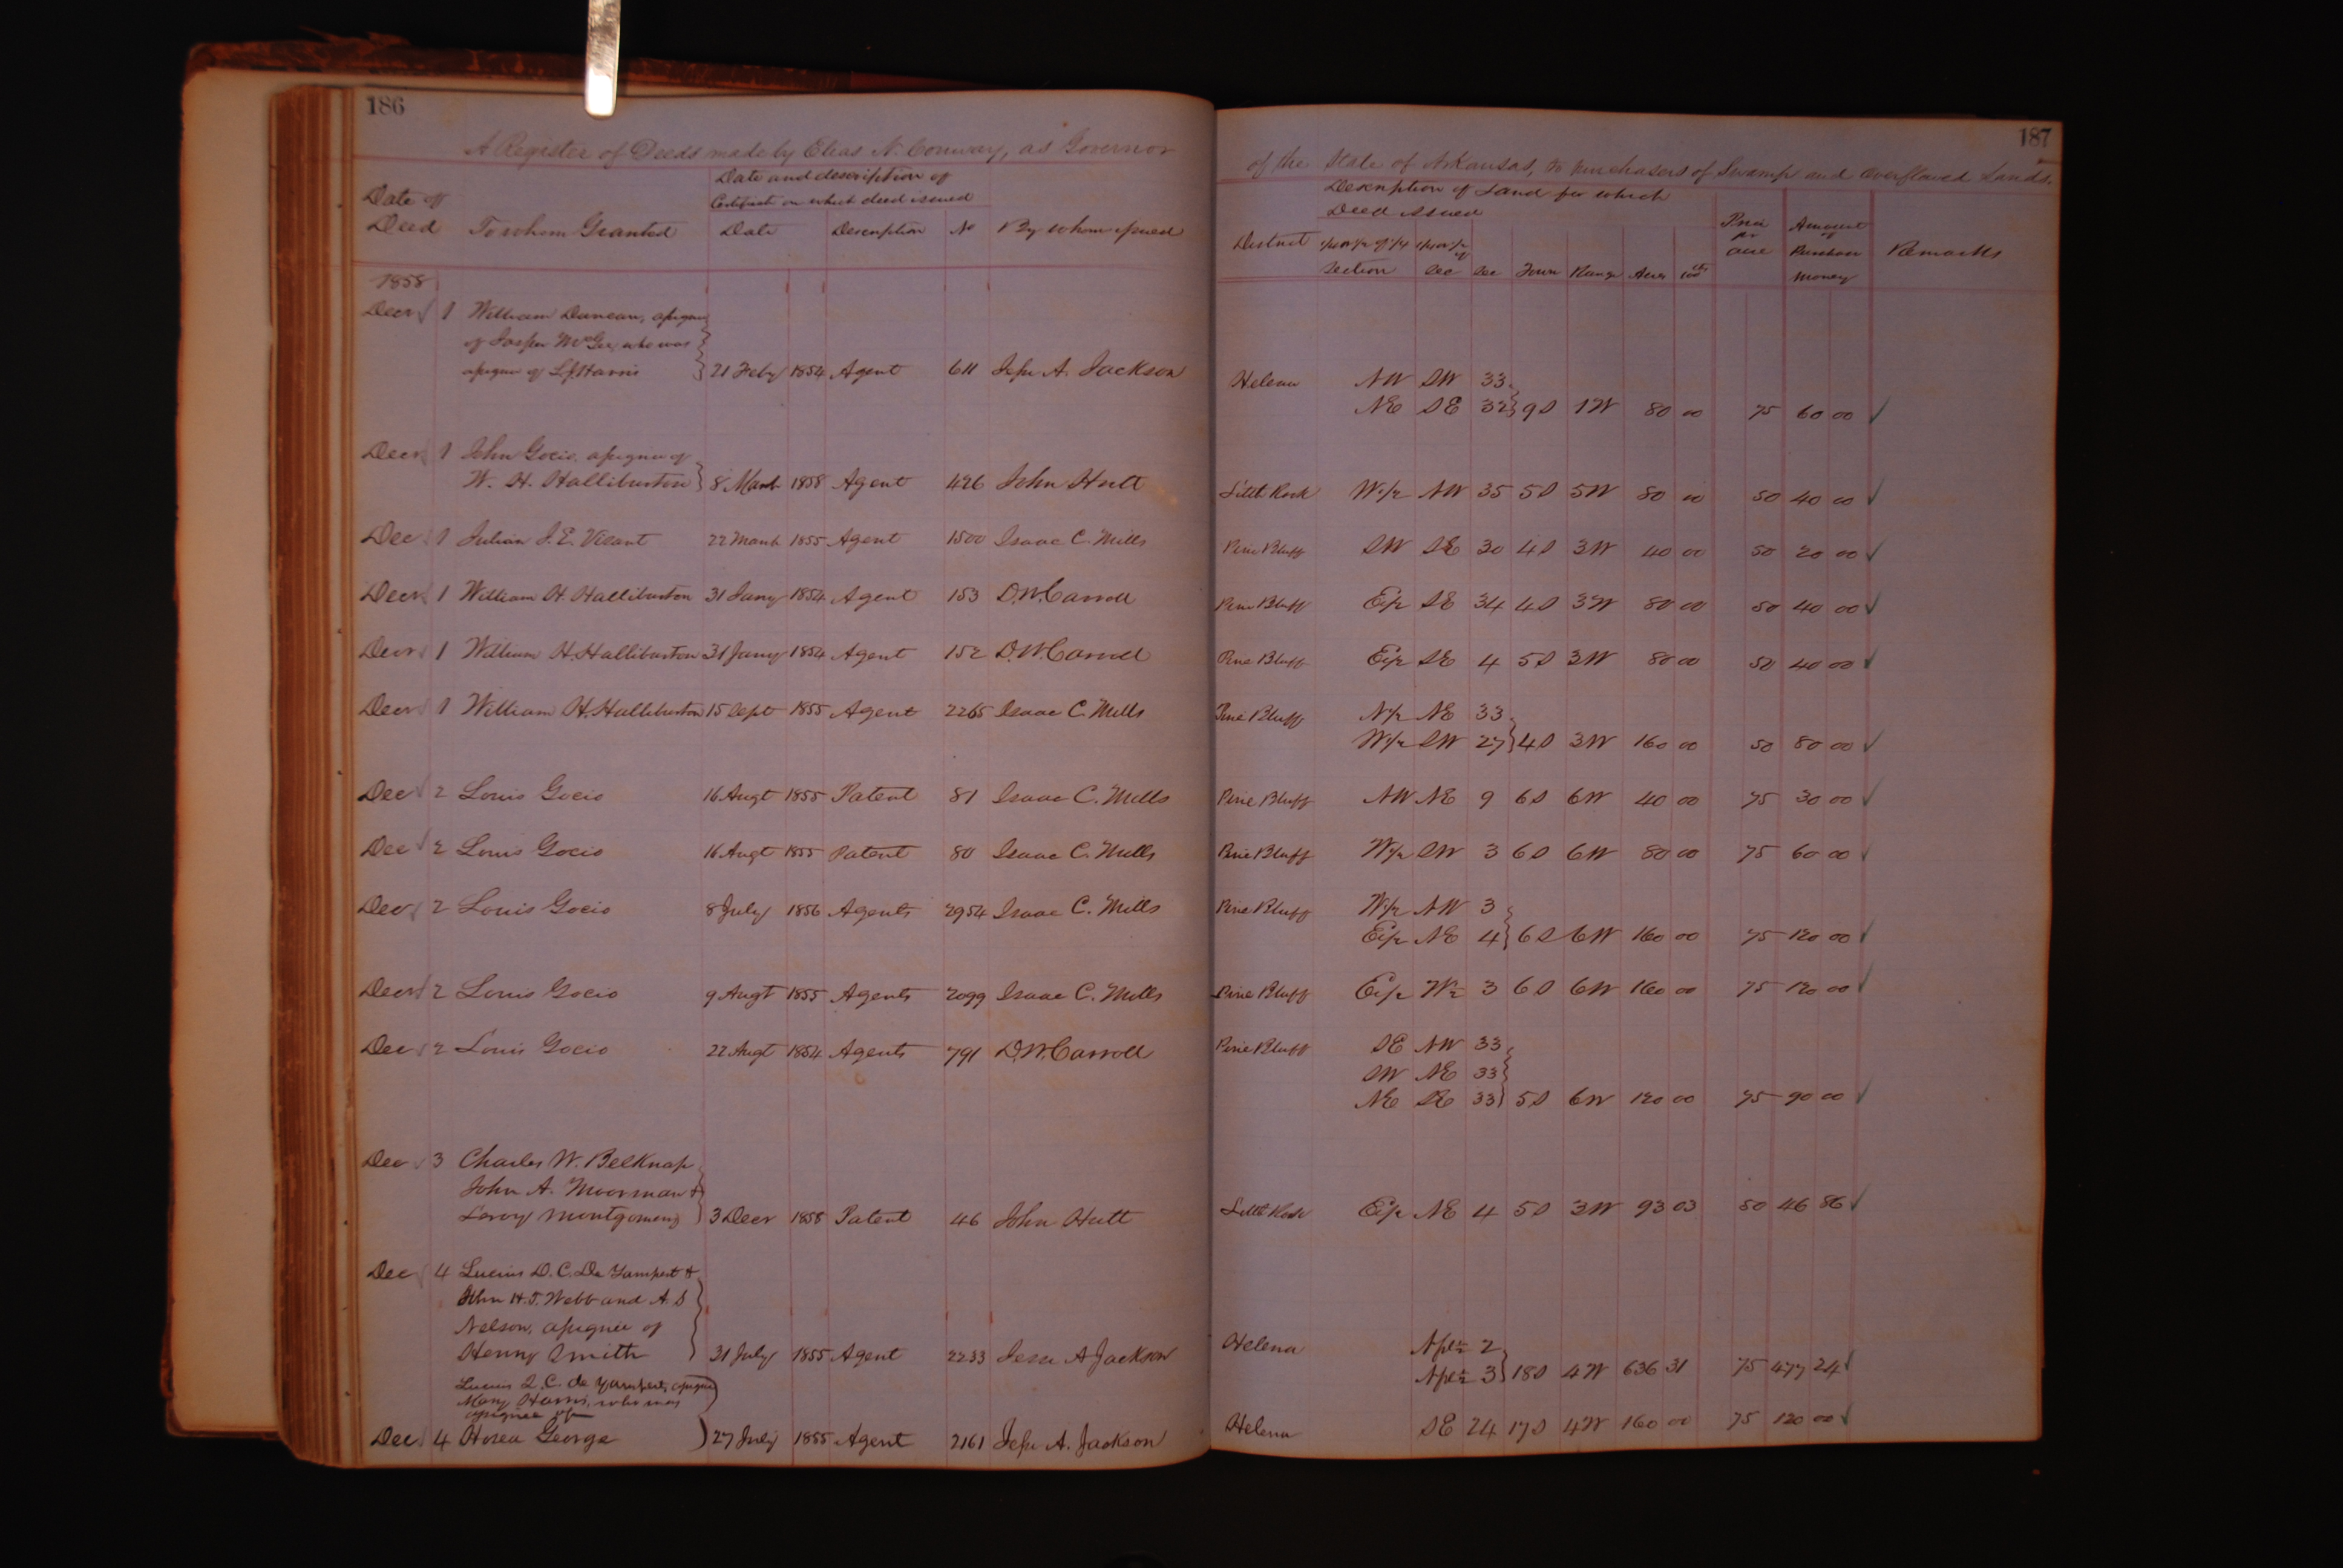 186
A Register of Deeds made by Elias N. Conway, as Governor
Date of Deed To whom Granted Date and description of Certificate on which deed issued
Date Description No By whom issued
1858
Decr 1 William Duncan, assignee
of Jasper McGee, who was
assignee of Harris 21 Feby 1854 Agent 611 Jesse A. Jackson
Decr 1 John Gocio, assignee of
W. H. Halliburton 8 March 1858 Agent 426 John Hutt
Dec 1 Julian J. E. 22 March 1855 Agent 1500 Isaac C. Mills
Decr 1 William H. Halliburton 31 Jany 1854 Agent 153 D.W. Carroll
Decr 1 William H. Halliburton 31 Jany 1854 Agent 152 D.W. Carroll
Decr 1 William H. Halliburton 15 Sept 1855 Agent 2265 Isaac C. Mills
Dec 2 Louis Gocio 16 Augt 1855 Patent 81 Isaac C. Mills
Dec 2 Louis Gocio 16 Augt 1855 Patent 80 Isaac C. Mills
Dec 2 Louis Gocio 8 July 1856 Agents 2954 Isaac C. Mills
Decr 2 Louis Gocio 9 Augt 1855 Agents 2099 Isaac C. Mills
Dec 2 Louis Gocio 22 Augt 1854 Agents 791 D.W. Carroll
Dec 3 Charles W. Belknap
John A. Moorman &
Leroy Montgomery 3 Decr 1858 Patent 46 John Hutt
Dec 4 Lucius D. C. De Yampert &
John H. T. Webb and A. S
Nelson, assignee of
Henry Smith 31 July 1855 Agent 2233 Jesse A Jackson
Lucius Q. C. de Yampert, assignee
Mary Harris, who was
assignee of
Dec 4 Hosea George 27 July 1855 Agent 2161 Jesse A. Jackson
187
of the State of Arkansas, to purchasers of Swamp and Overflowed Lands.
Description of Land for which
Deed issued
District 1/4 or 1/2 of 1/4 Section 1/4 or 1/2 of Sec Sec Town Range Acres 100ths Price pr acre Amount of Purchase Money Remarks
Helena NW SW 33
NE SE 32 9S 1W 80 00 75 60 00 ✓
Little Rock W1/2 NW 35 5S 5W 80 00 50 40 00 ✓
Pine Bluff SW SE 30 4S 3W 40 00 50 20 00 ✓
Pine Bluff E1/2 SE 34 4S 3W 80 00 50 40 00 ✓
Pine Bluff E1/2 SE 4 5S 3W 80 00 50 40 00 ✓
Pine Bluff N1/2 NE 33
W1/2 SW 27 4S 3W 160 00 50 80 00 ✓
Pine Bluff NW NE 9 6S 6W 40 00 75 30 00 ✓
Pine Bluff W1/2 SW 3 6S 6W 80 00 75 60 00 ✓
Pine Bluff W1/2 NW 3
E1/2 NE 4 6S 6W 160 00 75 120 00 ✓
Pine Bluff E1/2 W1/2 3 6S 6W 160 00 75 120 00 ✓
Pine Bluff SE NW 33
SW NE 33
NE SE 33 5S 6W 120 00 75 90 00 ✓
Little Rock E1/2 NE 4 5S 3W 93 03 50 46 86 ✓
Helena 2
3 18S 4W 636 31 75 477 24 ✓
Helena SE 24 17S 4W 160 00 75 120 00 ✓